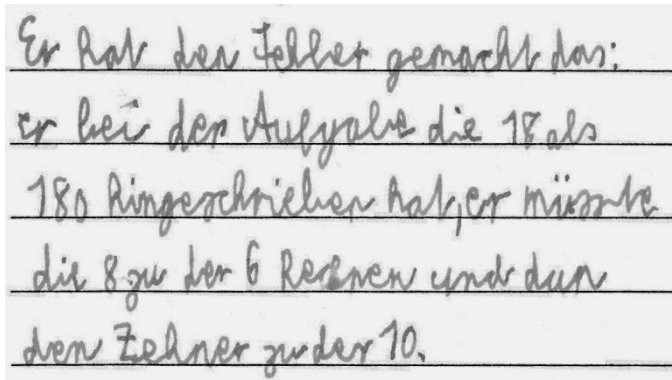 Er hat den Fehler gemacht das:
er bei der Aufgabe die 18 als
180 hingeschrieben hat, er müsste
die 8 zu der 6 Rechnen und dan
den Zehner zu der 10.